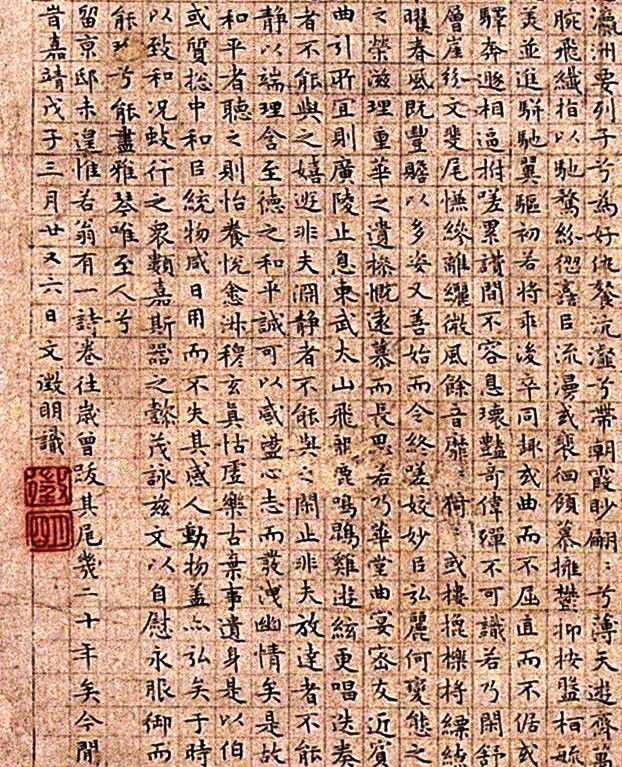 瀛洲要列子兮為好仇餐沆瀣兮帶朝霞眇翩〻兮薄天遊齊萬
腕飛纖指以馳騖紛㒊譶以流漫或裴徊顧慕擁鬱抑按盤桓毓
羙並進駢馳翼驅初若將乖後卒同趣或曲而不屈直而不倨或
驛奔遯相逼拊嗟累讚間不容息瓌豔奇偉殫不可識若乃閑舒
層崖紛文斐尾慊縿離纚微風餘音靡〻猗〻或摟㩢櫟捋縹繚
曜春風既豐贍以多姿又善始而令終嗟姣妙以弘麗何變態之
之榮滋理重華之遺操慨遠慕而長思若乃華堂曲宴密友近賓
曲引所宜則廣陵止息東武太山飛龍鹿鳴鵾雞遊絃更唱迭奏
者不能與之嬉遊非夫淵静者不能與之閑止非夫放達者不能
静以端理含至德之和平誠可以感盪心志而發洩幽情矣是故
和平者聽之則怡養悅愈淑穆玄真恬虛樂古棄事遺身是以伯
或質揔中和以統物咸日用而不失其感人動物盖亦弘矣于時
以致和况蚑行之衆類嘉斯器之懿茂詠兹文以自慰永服御而
能珍兮能盡雅琴唯至人兮
留京邸未遑惟若翁有一詩卷往歲曾跋其尾幾二十年矣今閒
旹嘉靖戊子三月廿又六日文徵明識
徵明